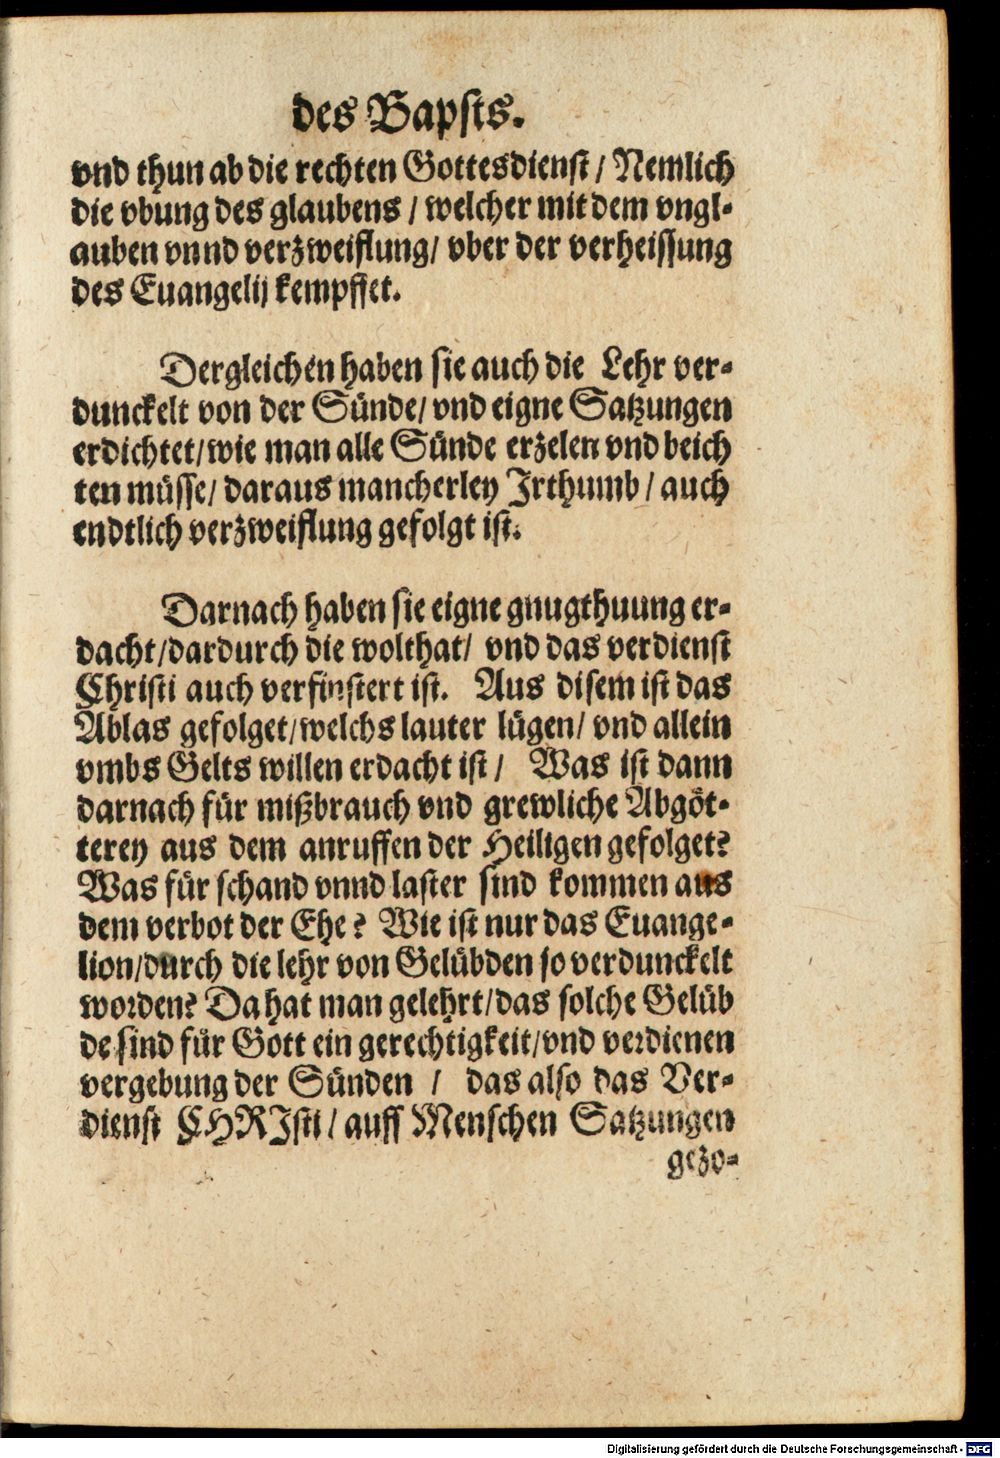 des Bapsts.
vnd thun ab die rechten Gottesdienst / Nemlich
die vbung des glaubens / welcher mit dem vngl-
auben vnnd verzweiflung / vber der verheissung
des Euangelij kempffet.
Dergleichen haben sie auch die Lehr ver-
dunckelt von der Sünde / vnd eigne Satzungen
erdichtet / wie man alle Sünde erzelen vnd beich
ten müsse / daraus mancherley Irthumb / auch
endtlich verzweiflung gefolgt ist.
Darnach haben sie eigne gnugthuung er-
dacht / dardurch die wolthat / vnd das verdienst
Christi auch verfinstert ist. Aus disem ist das
Ablas gefolget / welchs lauter lügen / vnd allein
vmbs Gelts willen erdacht ist / Was ist dann
darnach für mißbrauch vnd grewliche Abgöt-
terey aus dem anruffen der Heiligen gefolget?
Was für schand vnnd laster sind kommen aus
dem verbot der Ehe? Wie ist nur das Euange-
lion / durch die lehr von Gelübden so verdunckelt
worden? Da hat man gelehrt / das solche Gelüb
de sind für Gott ein gerechtigkeit / vnd verdienen
vergebung der Sünden / das also das Ver-
dienst CHRIsti / auff Menschen Satzungen
gezo-
Digitalisierung gefördert durch die Deutsche Forschungsgemeinschaft - DFG